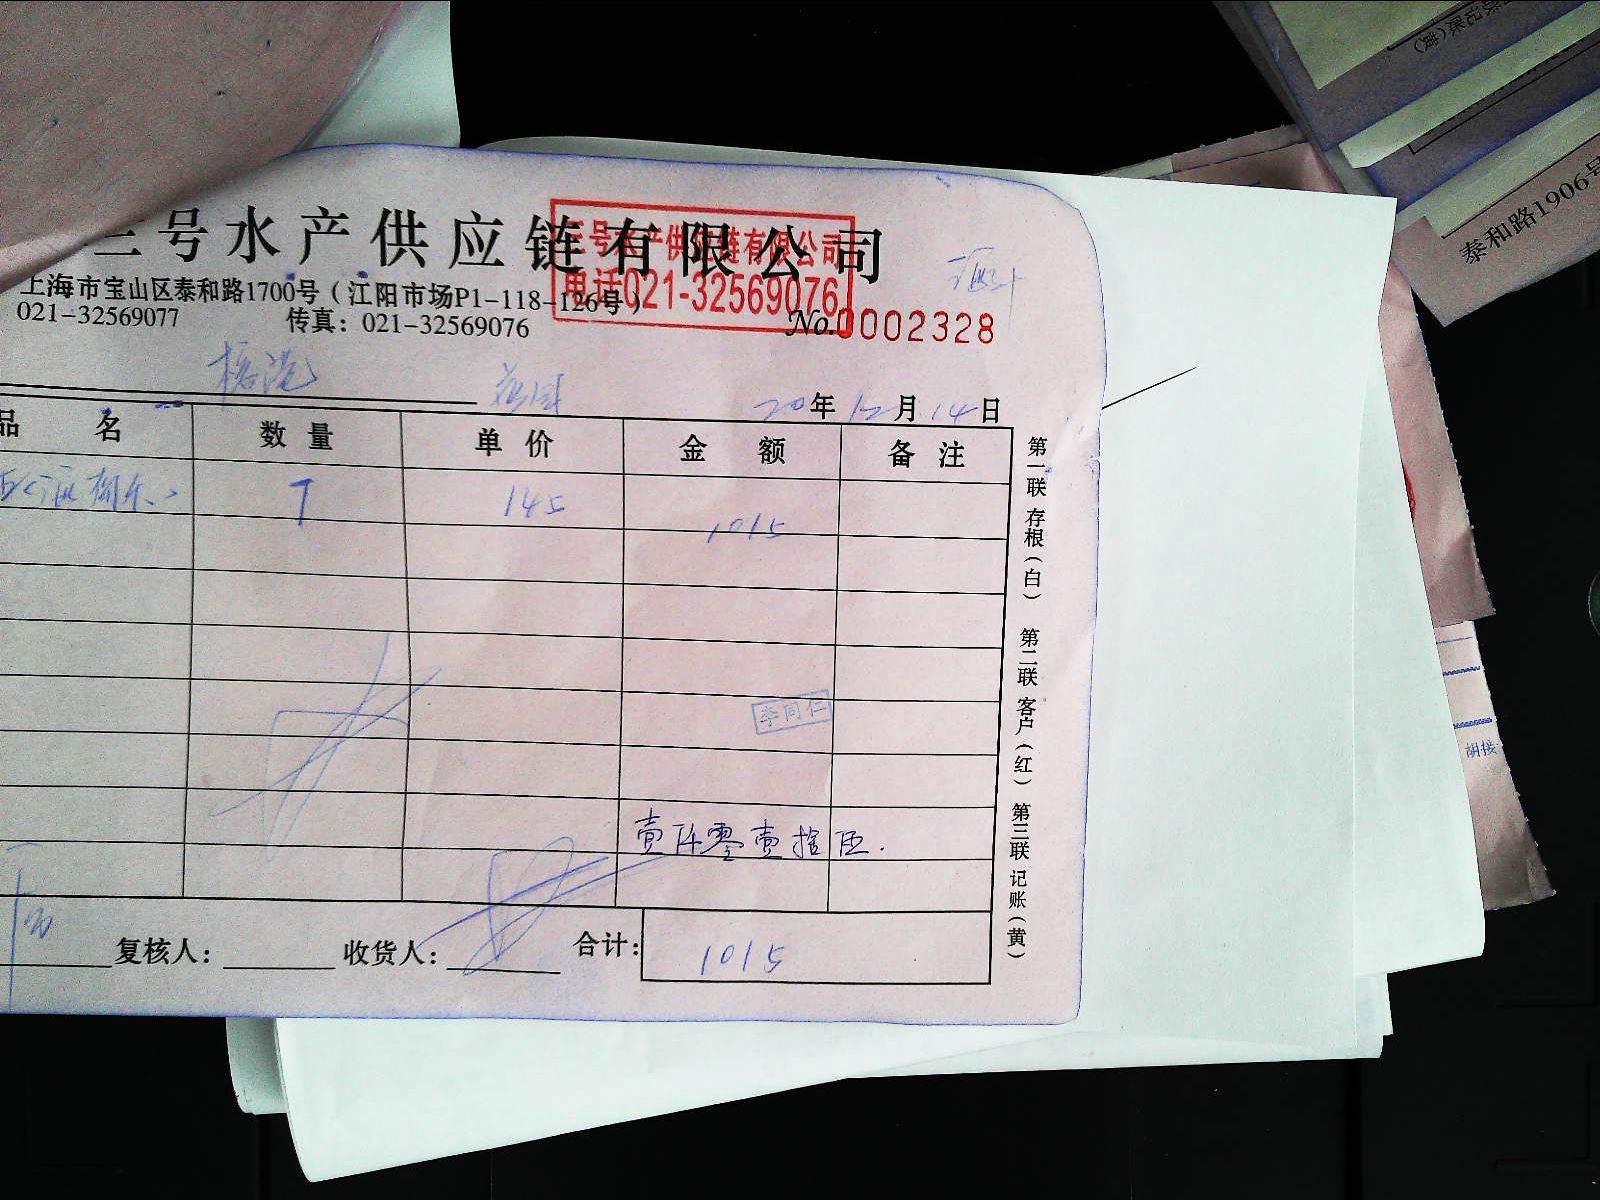 三号水产供应链有限公司
三号水产供应链有限公司
电话021-32569076
上海市宝山区泰和路1700号（江阳市场P1-118-126号）
021-32569077 传真：021-32569076
No.0002328
20年12月14日
品名 数量 单价 金额 备注
7 145 1015
李同仁
壹仟零壹拾伍.
复核人： 收货人： 合计： 1015
第一联 存根（白） 第二联 客户（红） 第三联 记账（黄）
泰和路1906号
胡接